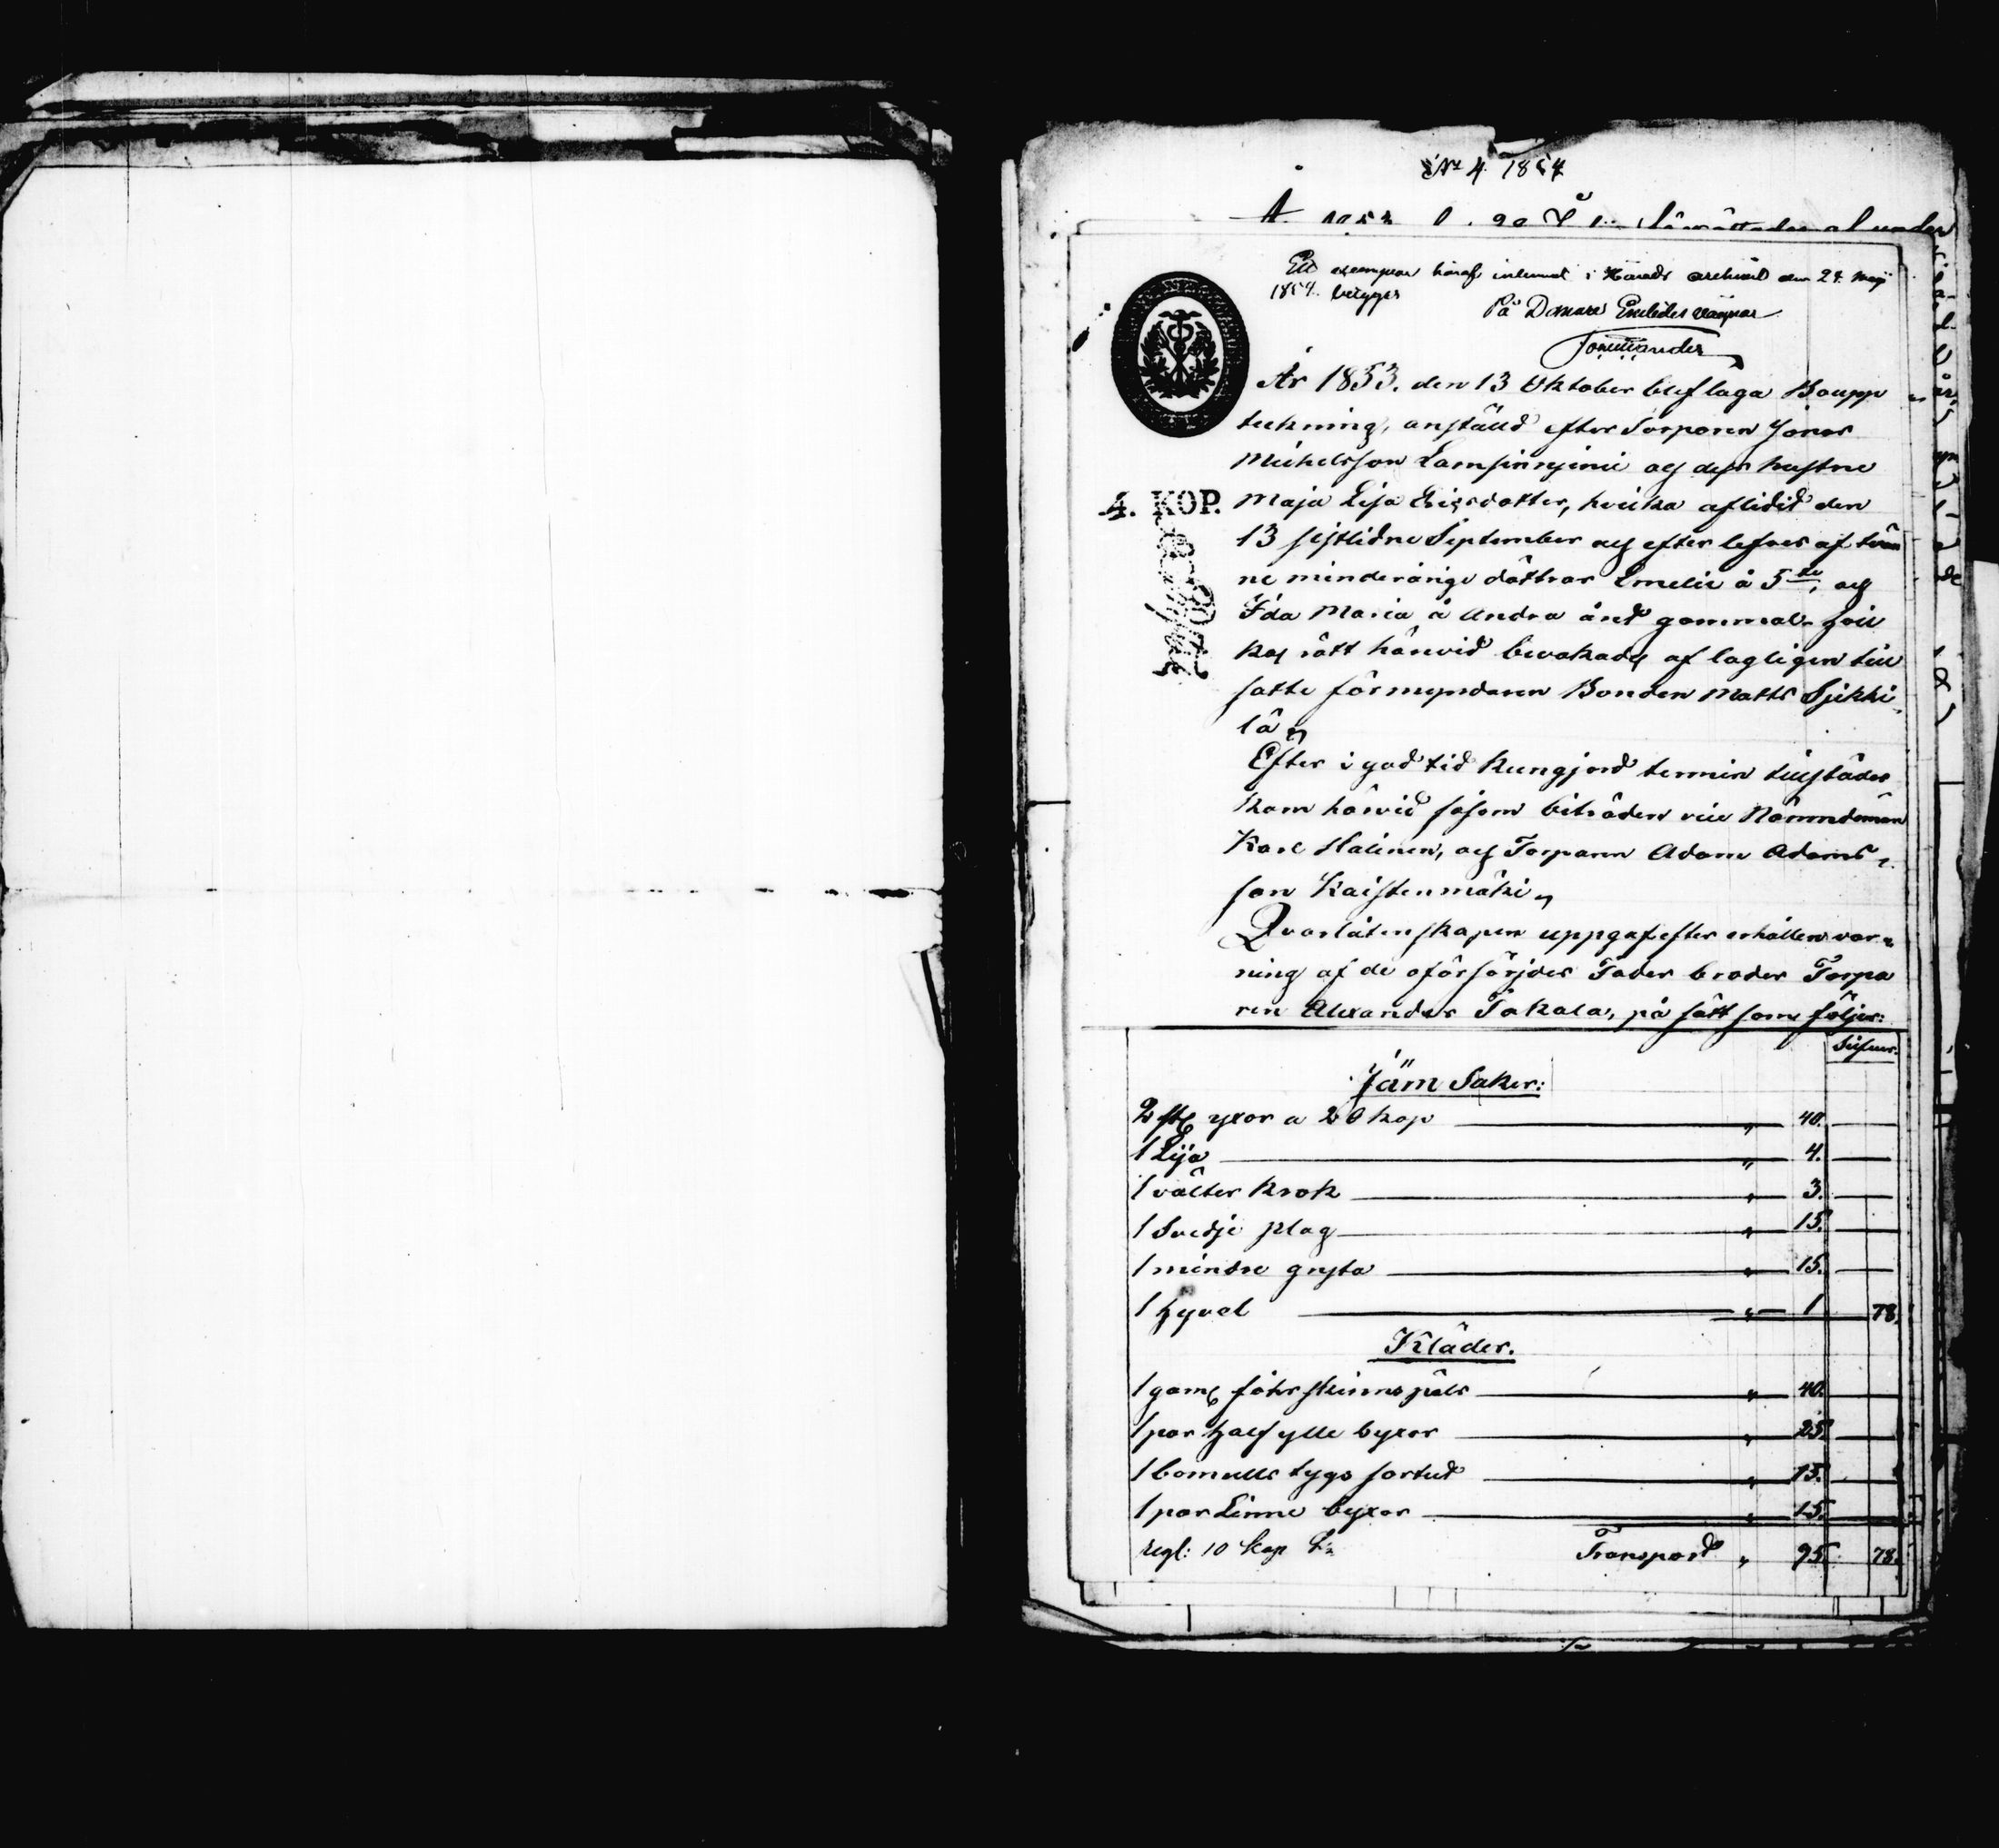 № 4. 1854
Ett exemplar häraf inlemnat i Härads archivet den 24 Maji
1854. betygar
På Domare Embetes vägnar
År 1853. den 13 Oktober blef laga Boupp
teckning, anstäld efter Torparen Jonas
Michelsson Lampinnjemi och dess hustru
4. KOP. Maja Lisa Ericsdotter, hvilka aflidit den
13 sistlidne September och efter lefves af tvän
ne minderårige döttrar Emelie å 5te, och
Ida Maria å Andra året gammal. hvil
kas rätt härvid bevakades af lagligen till
satte förmyndaren Bonden Matts Sjikki
lä
Efter i god tid kungjord termin tillstädes
kom härvid såsom biträden vice Nämndeman
Karl Halinen, och Torparen Adam Adams
son Kaistenmäki
Qvarlåtenskapen uppgaf efter erhållen var-
ning af de oförsörjdes Fader broder Torpa
ren Alexander Takala, på sätt som följer:
Silfver.
Järn Saker:
2 st yxor a 20 kop " 40.
1 Lija " 4.
1 välter krok " 3.
1 Svedje plog " 15.
1 mindre gryta " 15.
1 hyvel " 1 78.
Kläder.
1 gam fåhrskinns päls " 40.
1 par half ylle byxor " 25.
1 bomulls tygs fortud " 15.
1 par Linne byxor " 15.
regl: 10 kop Transport " 95. 78.